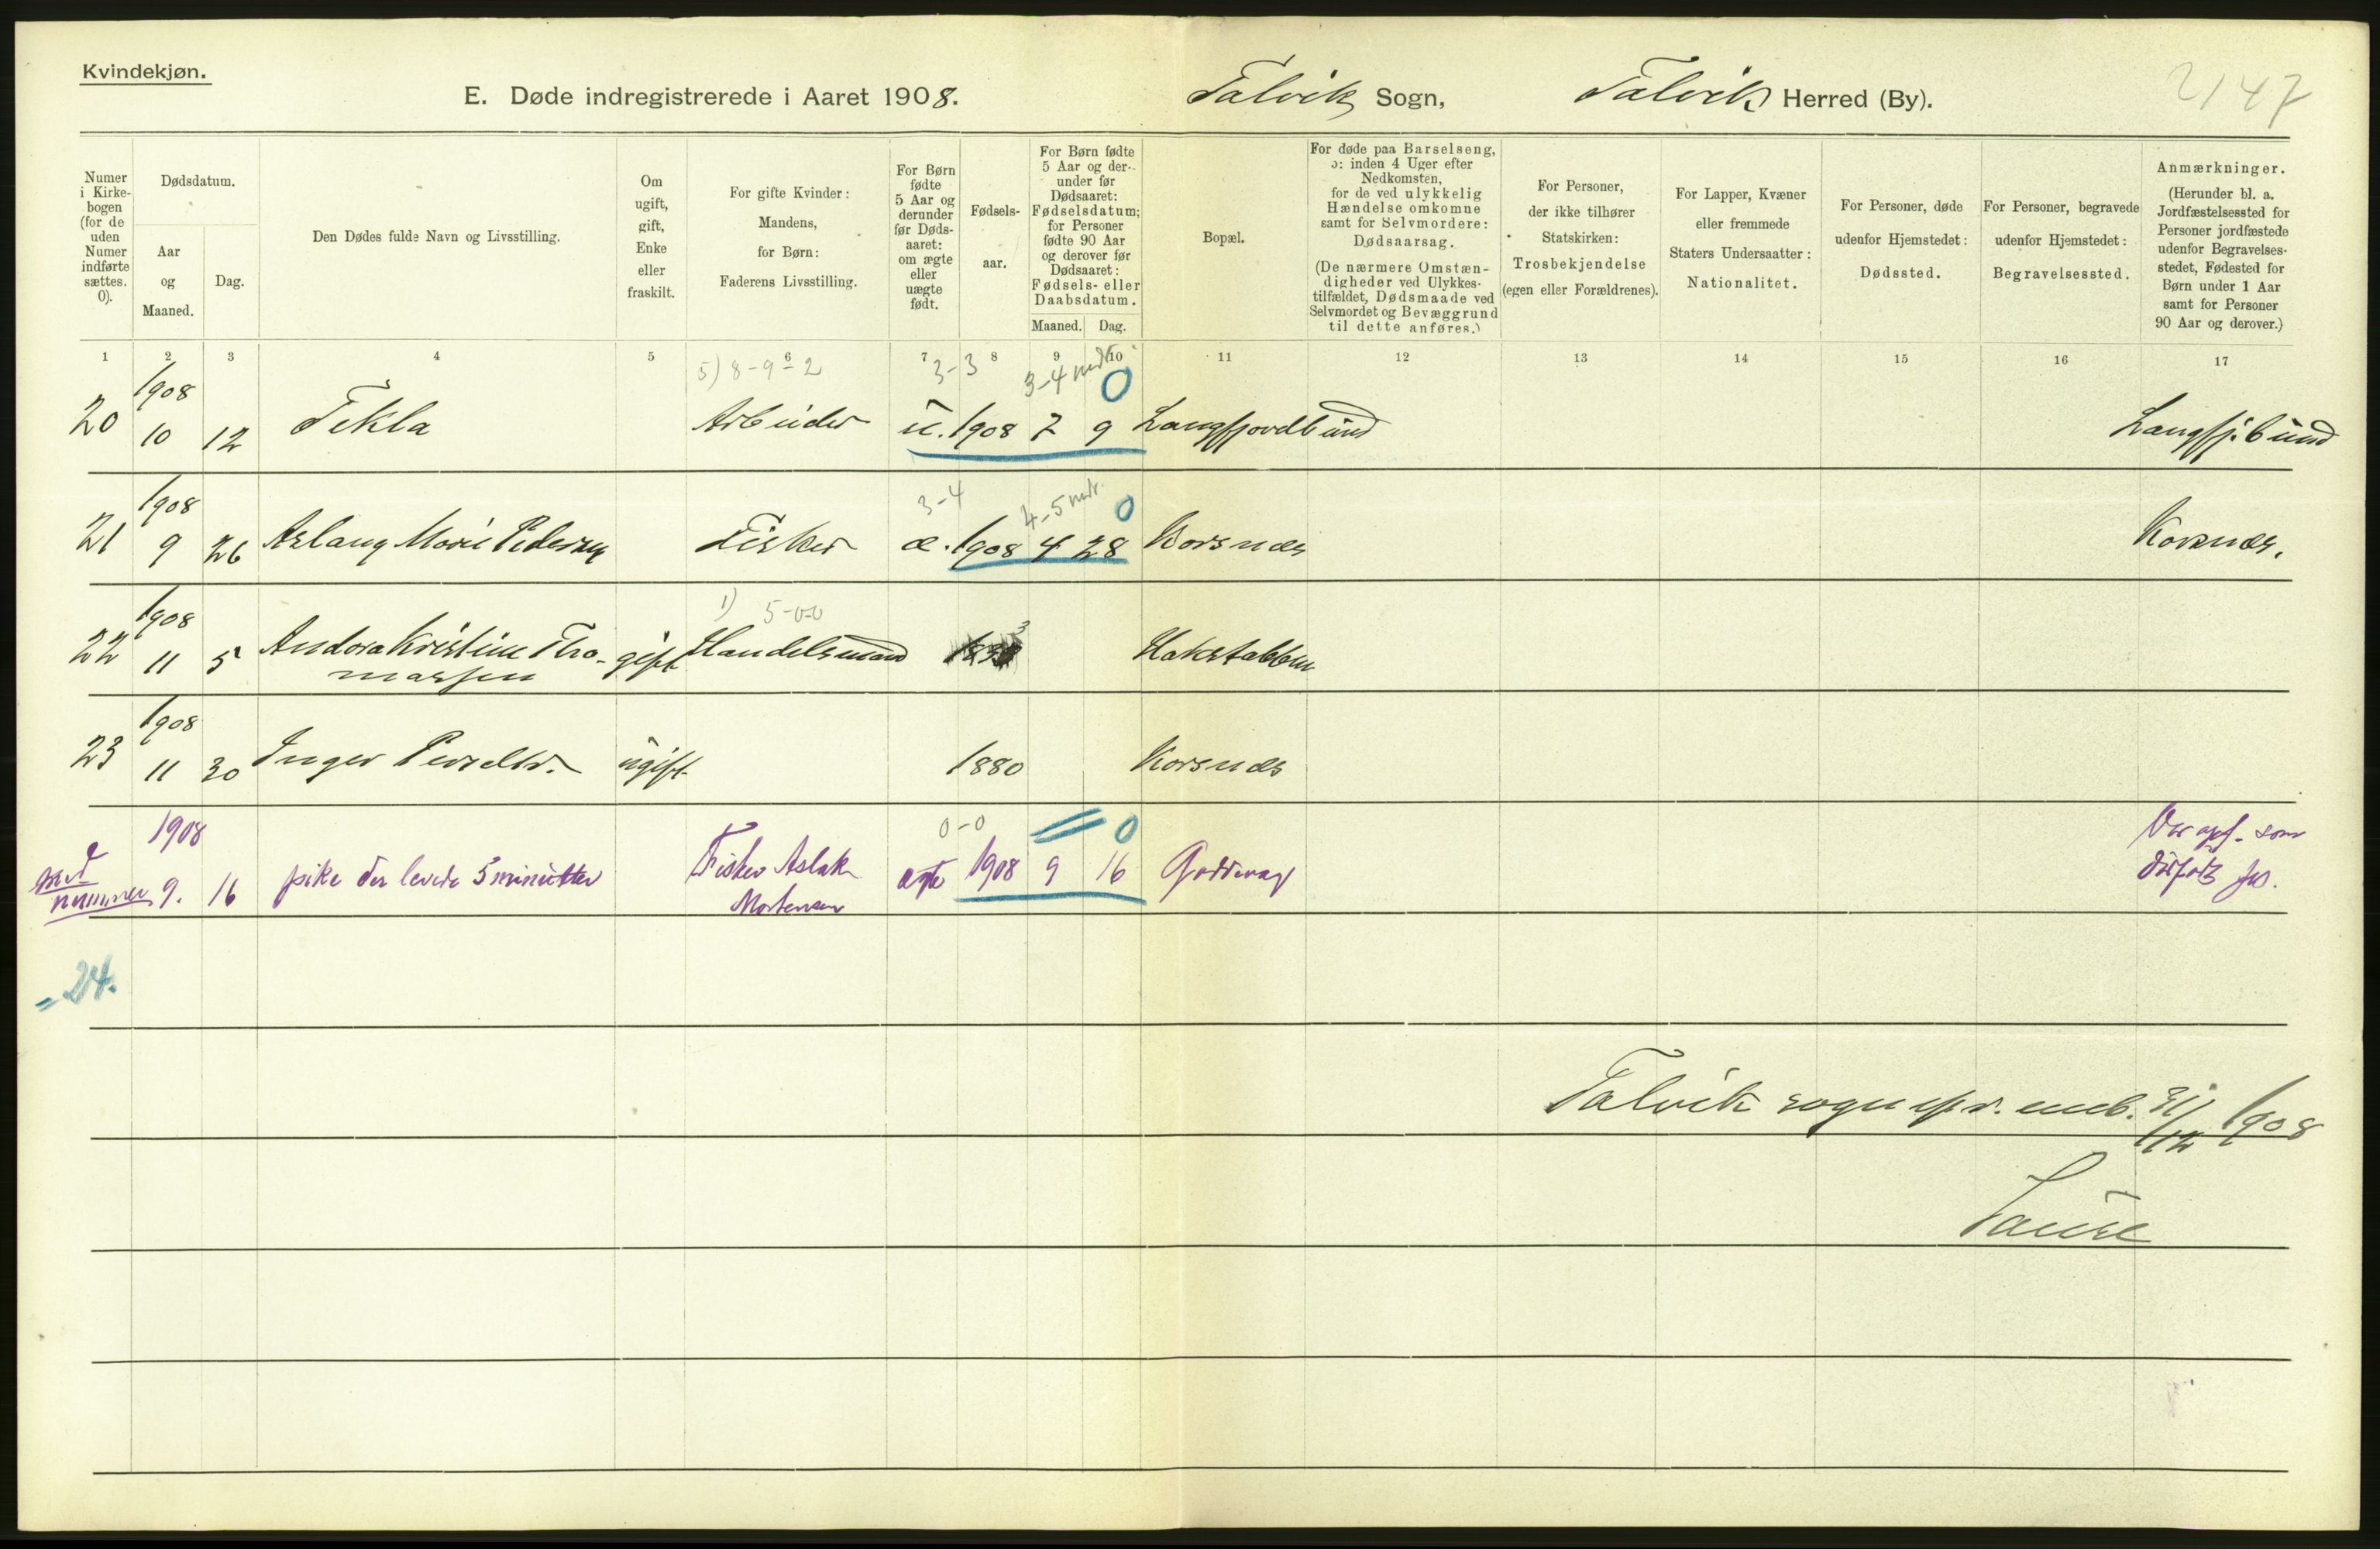 Kvindekjøn.
E. Døde indregistrerede i Aaret 1908.
Talvik Sogn,
Talvik Herred (By).
2147
Numer i Kirkebogen (for de uden Numer indførte sættes. 0).
Dødsdatum.
Aar og Maaned.
Dag.
Den Dødes fulde Navn og Livsstilling.
Om ugift, gift, Enke eller fraskilt.
For gifte Kvinder: Mandens, for Børn: Faderens Livsstilling.
For Børn fødte 5 Aar og derunder før Dødsaaret: om ægte eller uægte født.
Fødselsaar.
For Børn fødte 5 Aar og derunder før Dødsaaret: Fødselsdatum; for Personer fødte 90 Aar og derover før Dødsaaret: Fødsels- eller Daabsdatum.
Maaned. Dag.
Bopæl.
For døde paa Barselseng, ɔ: inden 4 Uger efter Nedkomsten, for de ved ulykkelig Hændelse omkomne samt for Selvmordere: Dødsaarsag.
(De nærmere Omstændigheder ved Ulykkestilfældet, Dødsmaade ved Selvmordet og Bevæggrund til dette anføres.)
For Personer, der ikke tilhører Statskirken: Trosbekjendelse (egen eller Forældrenes).
For Lapper, Kvæner eller fremmede Staters Undersaatter: Nationalitet.
For Personer, døde udenfor Hjemstedet: Dødssted.
For Personer, begravede udenfor Hjemstedet: Begravelsessted.
Anmærkninger.
(Herunder bl. a. Jordfæstelsessted for Personer jordfæstede udenfor Begravelsesstedet, Fødested for Børn under 1 Aar samt for Personer 90 Aar og derover.)
1 2 3 4 5 6 7 8 9 10 11 12 13 14 15 16 17
5) 8-9-2 3-3 3-4 mdr 0
20 1908 10 12 Tekla Arbeider u. 1908 7 9 Langfjordbund Langfj.bund
3-4 4-5 mdr. 0
21 1908 9 26 Aslaug Marie Pedersen Fisker æ. 1908 4 28 Korsnes Korsnes.
1) 5-0-0
22 1908 11 5 Andora Kristine Tho- gift Handelsmand Hakstabben
massen
23 1908 11 30 Inger Persdtr. ugift 1880 Korsnes
0-0 0
1908
nummer 9. 16 pike der levede 5 minutter Fisker Aslak Mortensen ægte 1908 9 16
som
= 24.
Talvik sognepr. emb. 31/12 1908